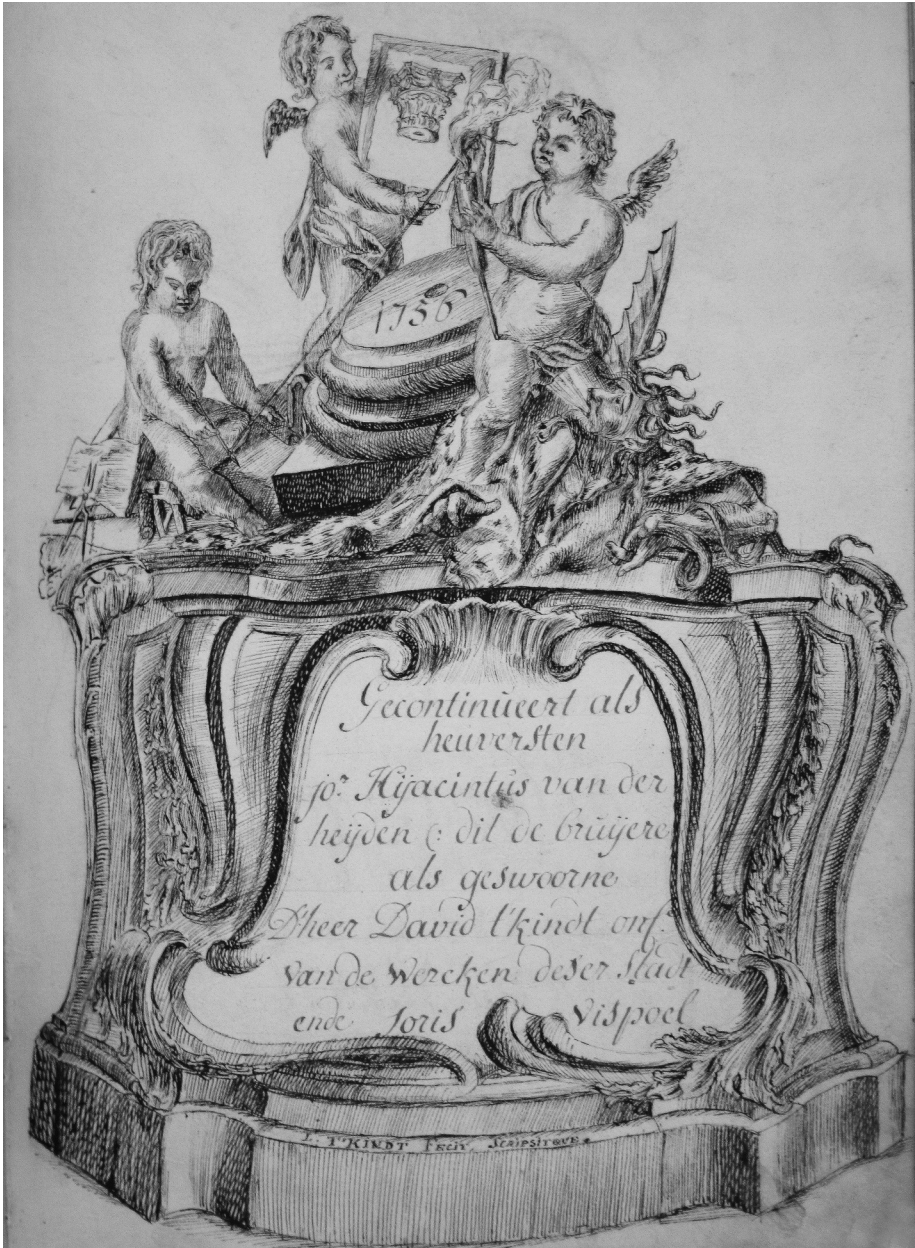 1756
Gecontinueert als
heuversten
jor. Hijacintus van der
heijden (: dit de bruijere
als geswoorne
D'heer David t'kindt onf:
van de Wercken deser stadt
ende Joris Vispoel
T'KINDT FECIT, SCRIPSITQUE.